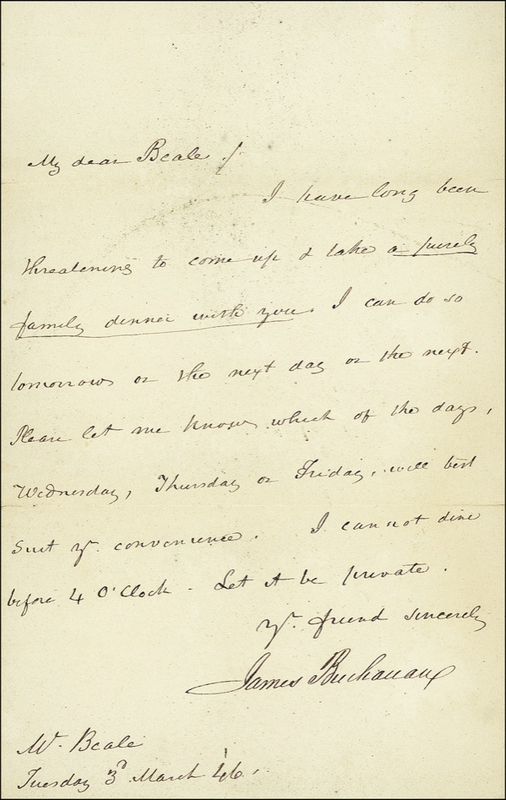 My dear Beale /
I have long been
threatening to come up & take a purely
family dinner with you. I can do so
tomorrow or the next day or the next.
Please let me know which of the days,
Wednesday, Thursday or Friday, will best
suit yr. convenience. I cannot dine
before 4 O'Clock - Let it be private.
yr. friend sincerely
James Buchanan
Mr. Beale
Tuesday 3d March '46.